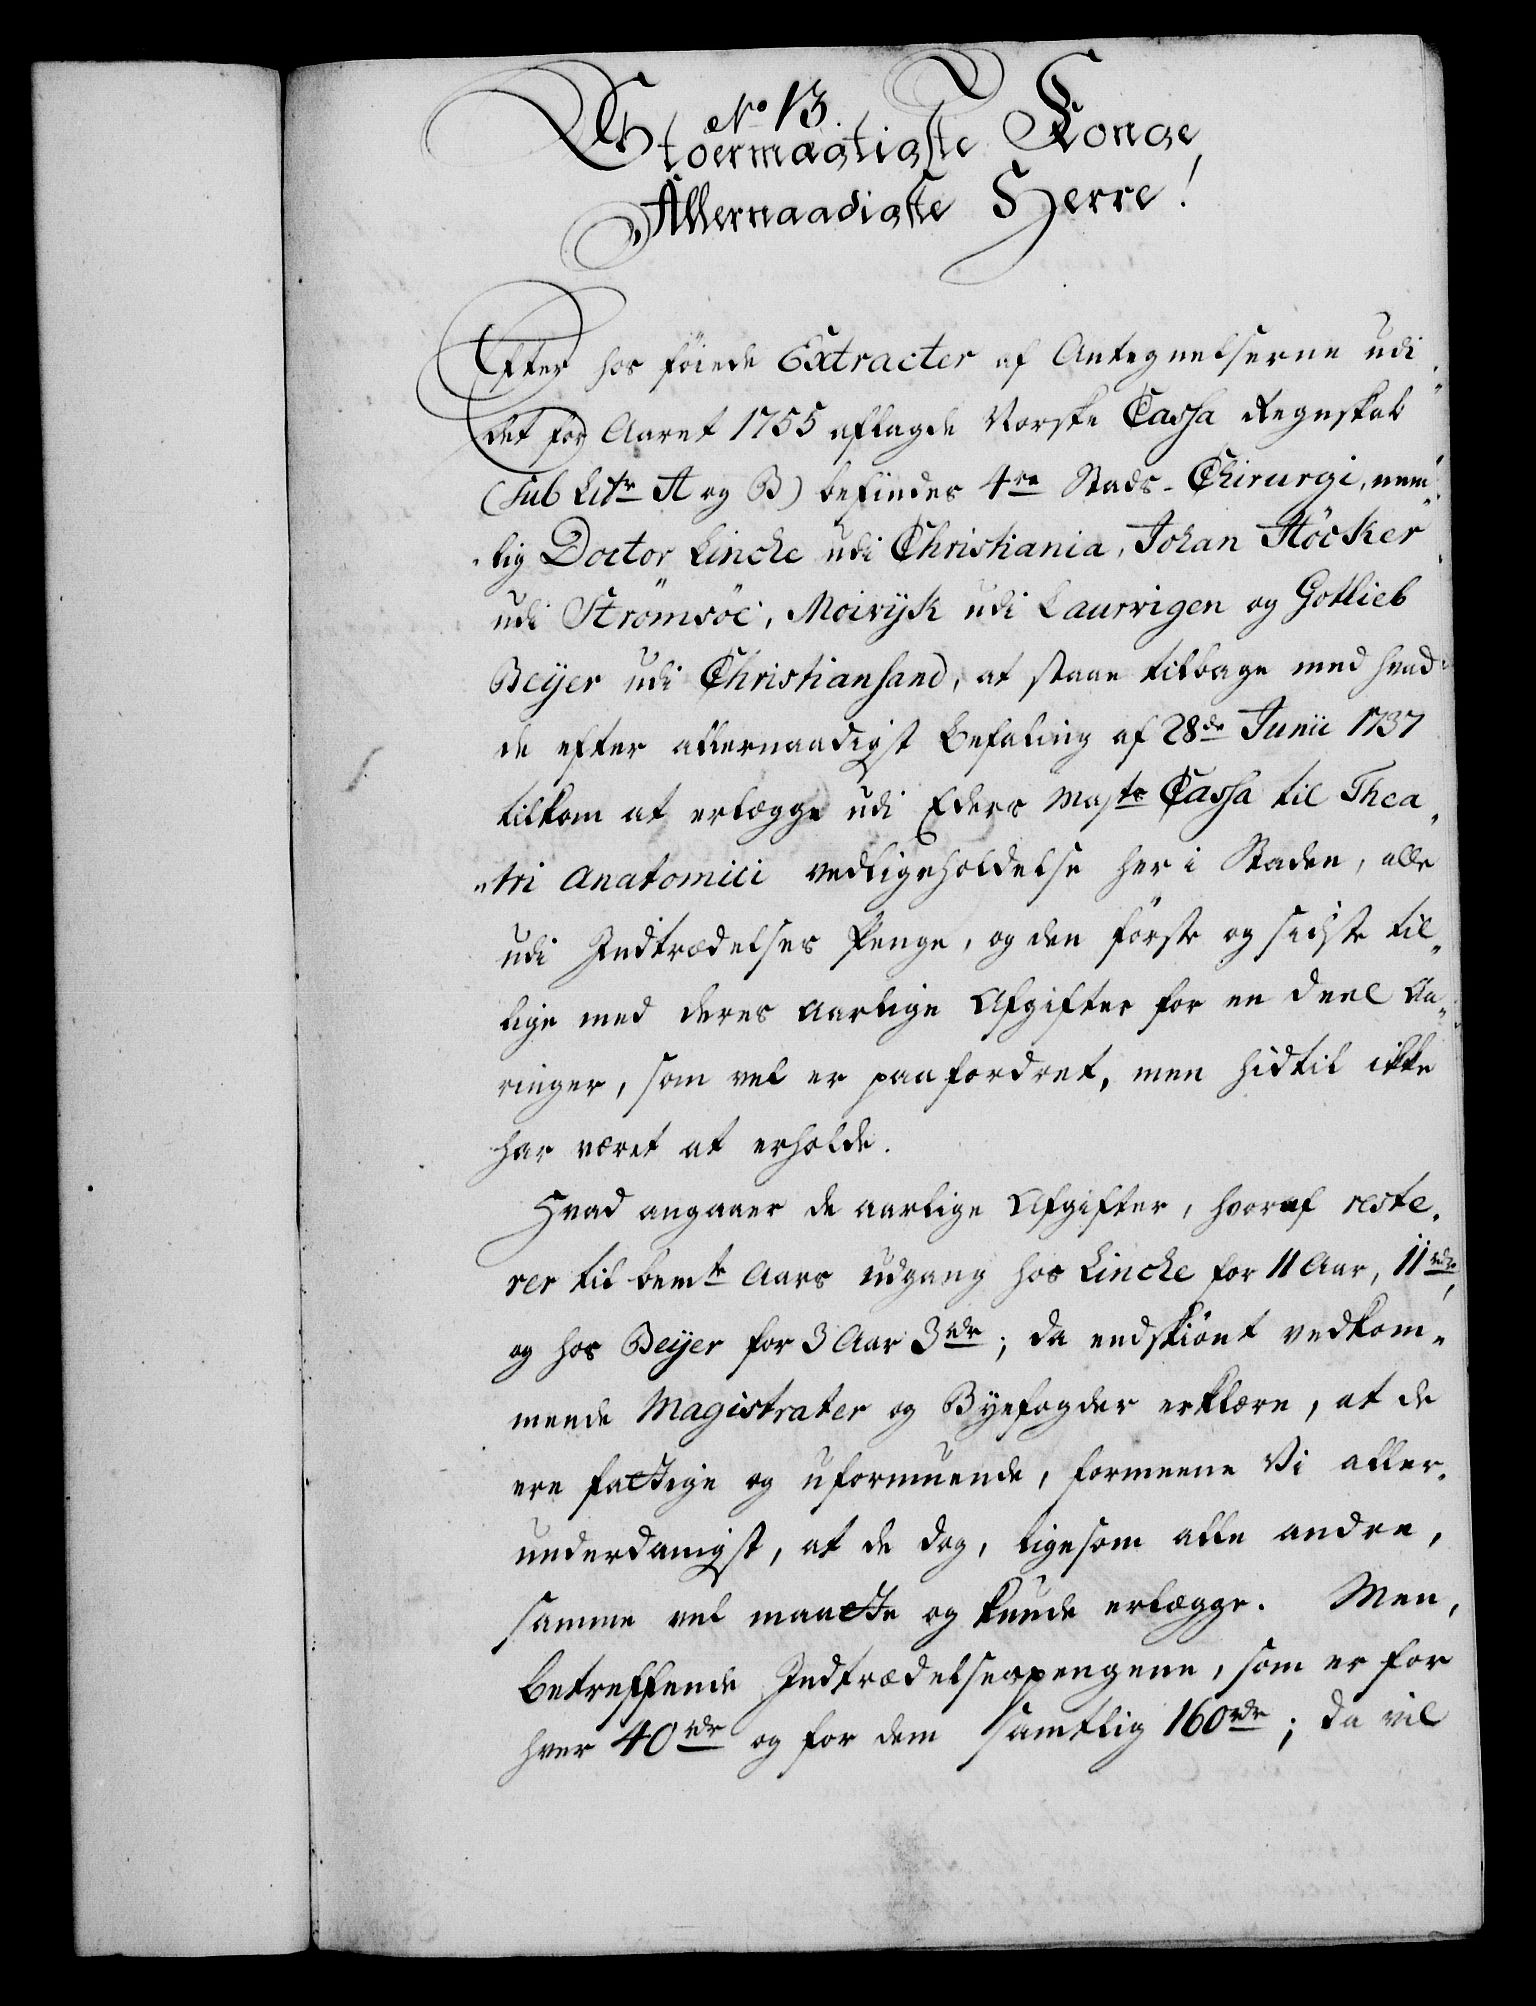 No 13.
Stoermægtigste Konge
Allernaadigste Herre!
Efter hos föiede Extracter af Antegnelserne udi
det for Aaret 1755 aflagde Norske Cassa Regnskab
(sub Litr A og B) befindes 4re Stads-Chirurgi, nem„
lig Doctor Lincke udi Christiania, Johan Höcker
udi Strömsöe, Moirijk udi Laurvigen og Gotlieb
Beijer udi Christiansand, at staae tilbage med hvad
de efter allernaadigst Befaling af 28de Junii 1737
tilkom at erlægge udi Eders Majts Cassa til Thea„
„tri Anatomici vedligeholdelse her i Staden, alle
udi Indtrædelses Penge, og den förste og sidste til„
lige med deres aarlige Afgifter for en deel Aa„
ringer, som vel er paafordret, men hidtil ikke
har været at erholde.
Hvad angaaer de aarlige Afgifter, hvoraf reste„
rer til bemte Aars udgang hos Lincke for 11 Aar, 11 rdr,
og hos Beijer for 3 Aar 3 rdr; da endskiönt vedkom„
mende Magistrater og Byefogder erklære, at de
ere fattige og uformuende, formeene Vi aller„
underdanigst, at de dog, ligesom alle andre,
samme vel maatte og kunde erlægge. Men,
betreffende Indtrædelsespengene, som er for
hver 40 rdr og for dem samtlig 160 rdr; da vil